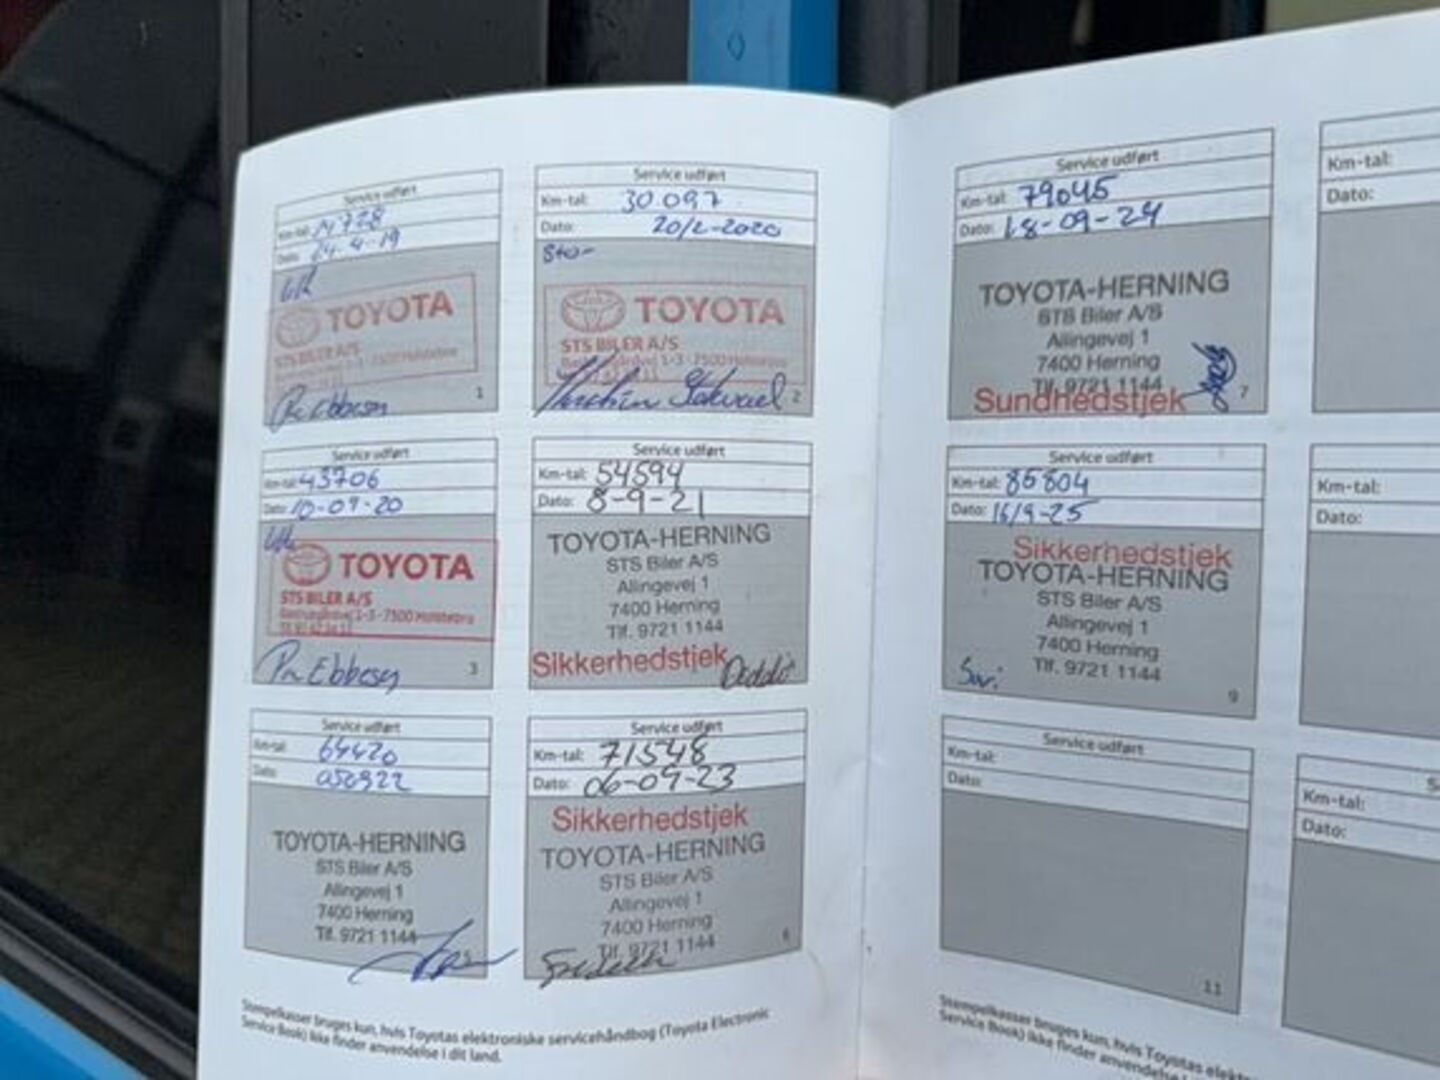 Service udført
Km-tal: 14728
Dato: 24-4-19
TOYOTA
STS BILER A/S
1-3 - 7500 Holstebro
Ebbesen
1
Service udført
Km-tal: 30.097
Dato: 20/2-2020
TOYOTA
STS BILER A/S
1-3 - 7500 Holstebro
2
Service udført
Km-tal: 43706
Dato: 10-09-20
TOYOTA
STS BILER A/S
1-3 - 7500 Holstebro
Ebbesen
3
Service udført
Km-tal: 54594
Dato: 8-9-21
TOYOTA-HERNING
STS Biler A/S
Allingevej 1
7400 Herning
Tlf. 9721 1144
Sikkerhedstjek
Service udført
Km-tal: 64420
Dato: 050922
TOYOTA-HERNING
STS Biler A/S
Allingevej 1
7400 Herning
Tlf. 9721 1144
5
Service udført
Km-tal: 71548
Dato: 06-09-23
Sikkerhedstjek
TOYOTA-HERNING
STS Biler A/S
Allingevej 1
7400 Herning
Tlf. 9721 1144
6
Stempelkasser bruges kun, hvis Toyotas elektroniske servicehåndbog (Toyota Electronic
Service Book) ikke finder anvendelse i dit land.
Service udført
Km-tal: 79045
Dato: 18-09-24
TOYOTA-HERNING
STS Biler A/S
Allingevej 1
7400 Herning
Tlf. 9721 1144
Sundhedstjek
7
Km-tal:
Dato:
Service udført
Km-tal: 85804
Dato: 16/9-25
Sikkerhedstjek
TOYOTA-HERNING
STS Biler A/S
Allingevej 1
7400 Herning
Tlf. 9721 1144
9
Km-tal:
Dato:
Service udført
Km-tal:
Dato:
11
S
Km-tal:
Dato:
Stempelkasser bruges kun, hvis Toyotas elekt
Service Book) ikke finder anvendelse i